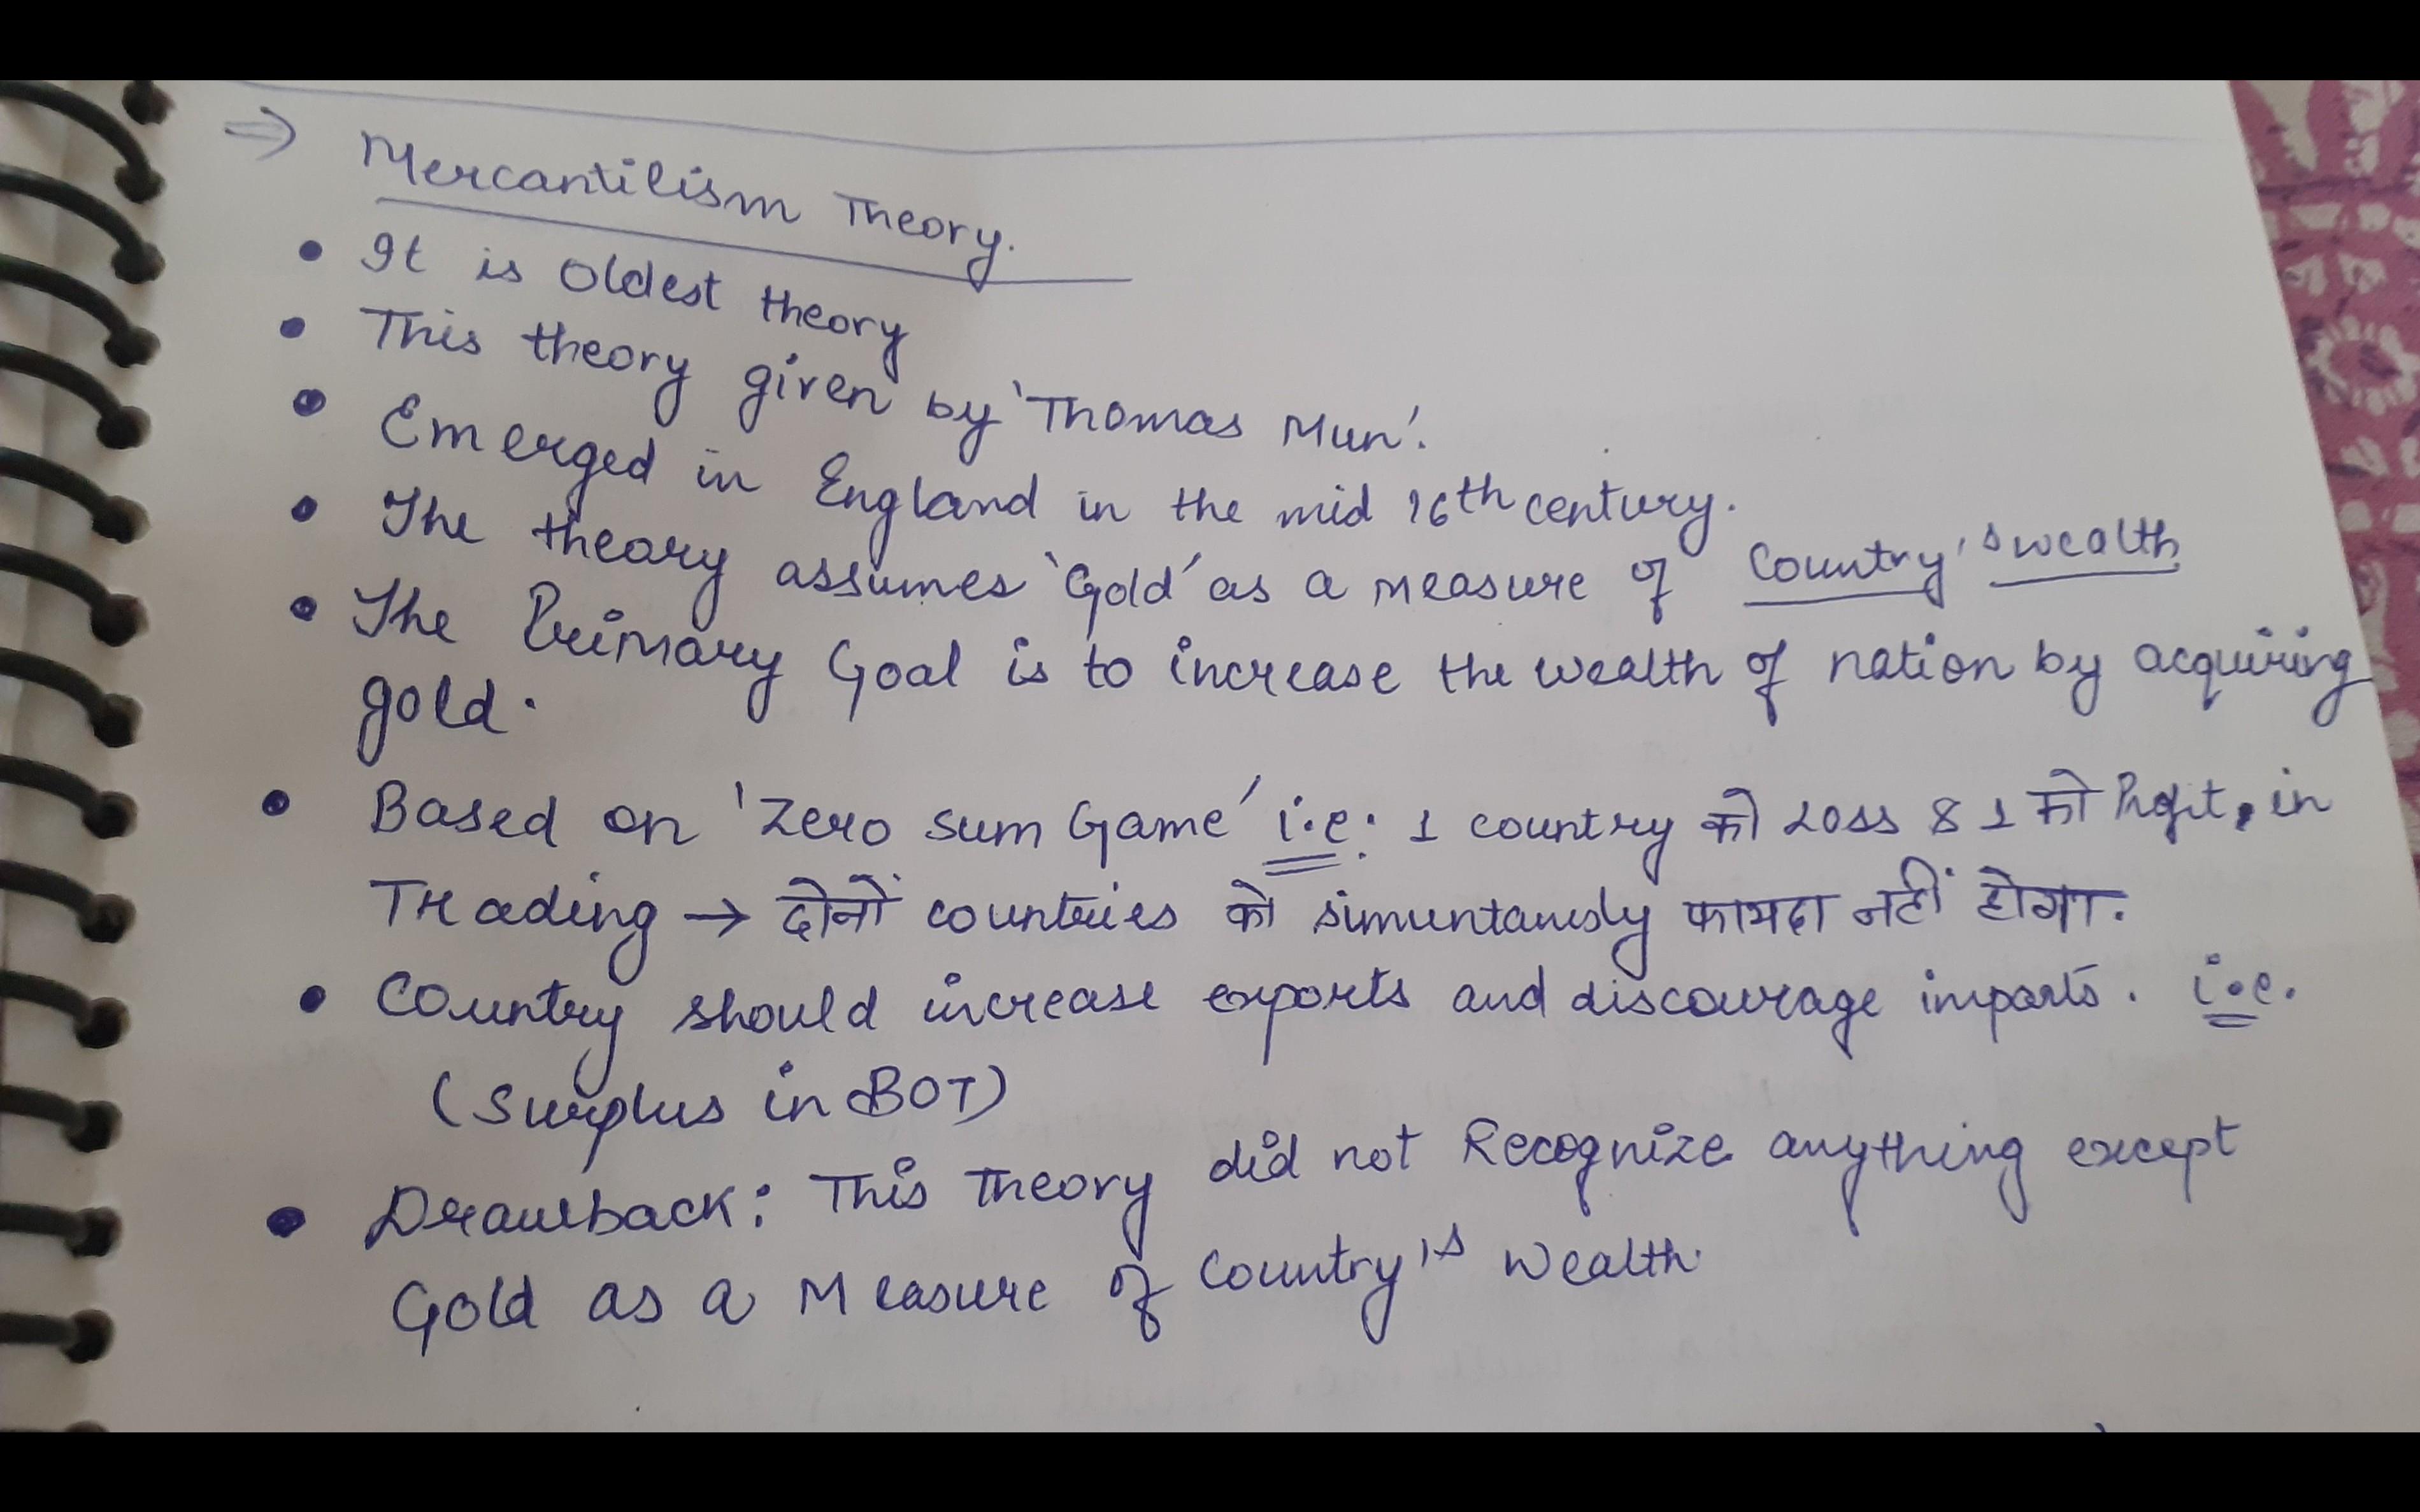 ⇒ Mercantilism Theory.
• It is Oldest theory
• This theory given by 'Thomas Mun'.
• Emerged in England in the mid 16th century.
• The theory assumes 'Gold' as a measure of Country's wealth
• The Primary Goal is to increase the wealth of nation by acquiring
gold.
• Based on 'Zero sum Game' i.e: 1 country को Loss & 1 को Profit, in
Trading → दोनों countries को simuntanusly फायदा नहीं होगा.
• Country should increase exports and discourage imports. i.e.
(Surplus in BOT)
• Drawback: This Theory did not Recognize anything except
Gold as a Measure of Country's Wealth